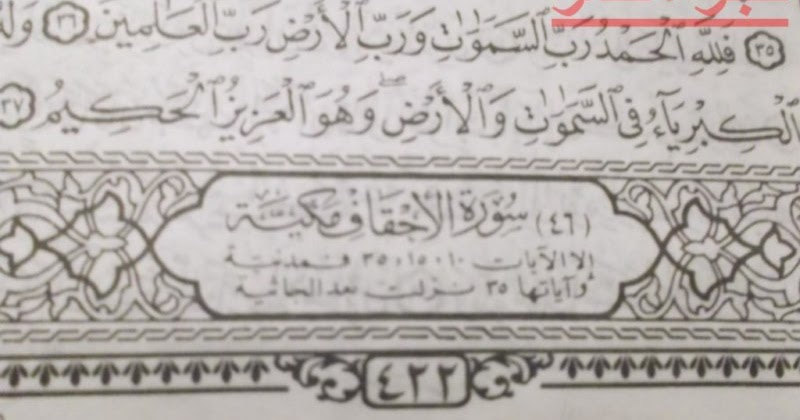 ﴿٣٥﴾ فَلِلَّهِ ٱلْحَمْدُ رَبِّ ٱلسَّمَٰوَٰتِ وَرَبِّ ٱلْأَرْضِ رَبِّ ٱلْعَٰلَمِينَ ﴿٣٦﴾ وَلَهُ
ٱلْكِبْرِيَآءُ فِى ٱلسَّمَٰوَٰتِ وَٱلْأَرْضِ ۖ وَهُوَ ٱلْعَزِيزُ ٱلْحَكِيمُ ﴿٣٧﴾
(٤٦) سُورَةُ الأَحْقَافِ مَكِّيَّة
إلا الآيات ١٠ و ١٥ و ٣٥ فمدنية
وآياتها ٣٥ نزلت بعد الجاثية
٤٢٢